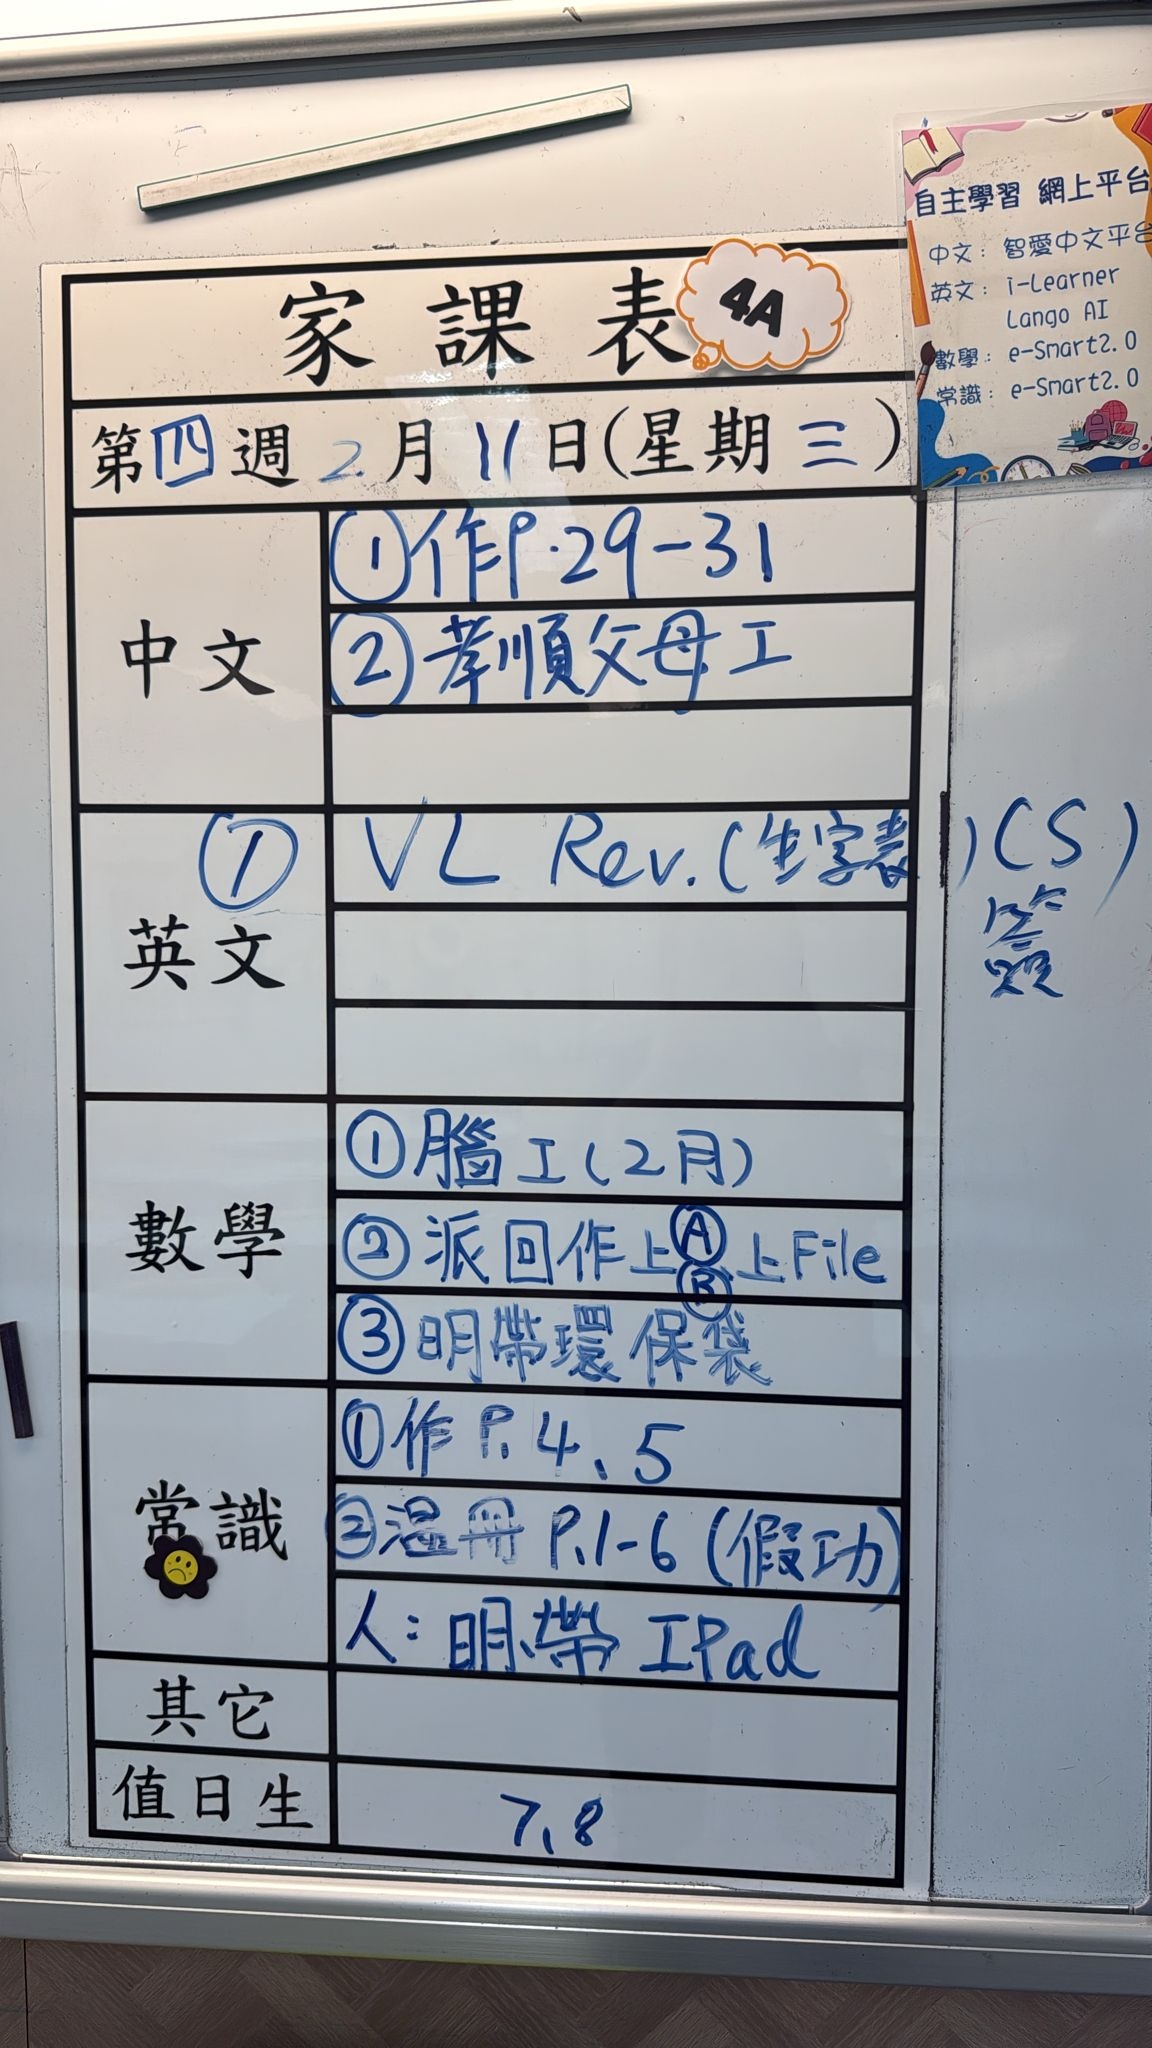 自主學習 網上平台
中文：智愛中文平台
英文：i-Learner
Lango AI
數學：e-Smart2.0
常識：e-Smart2.0
家課表 4A
第四週 2月11日(星期三)
中文
①作P.29-31
②孝順父母工
英文
① VL Rev.(生字表)(S)
簽
數學
①腦工(2月)
②派回作上Ⓐ上File
Ⓑ
③明帶環保袋
常識
①作P.4、5
②溫冊P.1-6(假功)
人：明帶IPad
其它
值日生
7、8